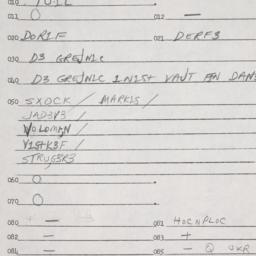 010
011 O 012 —
020 DORIF 021 DERFS
030 D3 GREJNIC
040 D3 GREJNIC INIST VAJT AN DAN
050 SXOCK / MARKIS /
JAD3V3 /
VOLOMAN /
VISTK3F /
STRUG3R3
060 O
070 O
080 — 081 HOCNPLOC
082 — 083 +
084 — 085 — Q